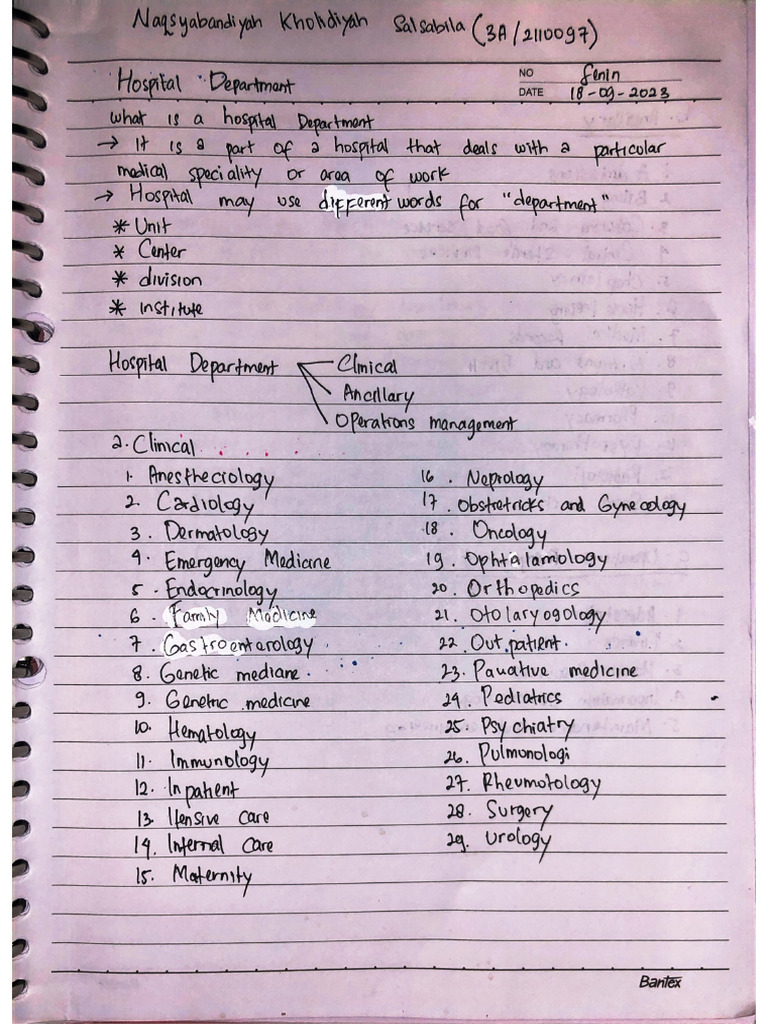 Naqsyabandiyah Kholidiyah Salsabila (3A/2110097)
NO Senin
Hospital Department
DATE 18-09-2023
what is a hospital Department
→ It is a part of a hospital that deals with a particular
medical speciality or area of work
→ Hospital may use different words for "department"
* Unit
* Center
* division
* institute
Hospital Department Clinical
Ancillary
Operations management
2. Clinical
1. Anesthecrology
2. Cardiology
3. Dermatology
4. Emergency Medicine
5. Endocrinology
6. Family Medicine
7. Gastroenterology
8. Genetic mediane.
9. Genetric medicine
10. Hematology
11. Immunology
12. Inpatient
13. Itensive care
14. Internal Care
15. Maternity
16. Neprology
17. Obstretricks and Gynecology
18. Oncology
19. Ophtalamology
20. Orthopedics
21. Otolaryogology
22. Out patient.
23. Pauative medicine
24. Pediatrics
25. Psychiatry
26. Pulmonologi
27. Rheumotology
28. Surgery
29. Urology
Bantex